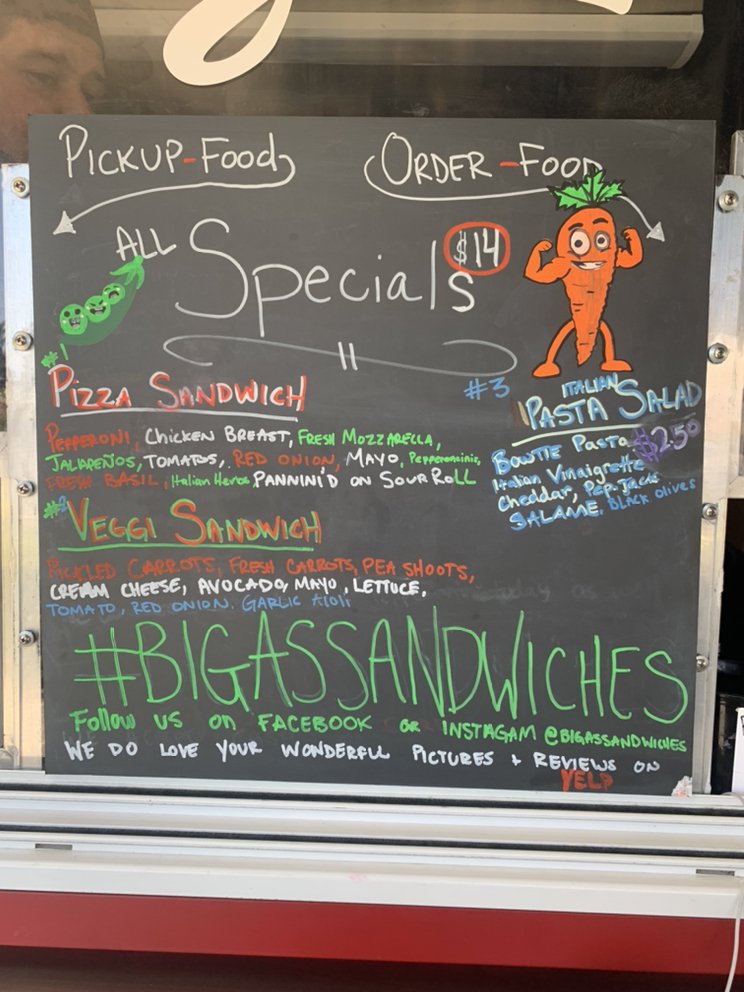 PICKUP-FOOD
ORDER-FOOD
ALL Specials $14
#1
PIZZA SANDWICH
PEPPERONI, CHICKEN BREAST, FRESH MOZZARELLA,
JALAPEÑOS, TOMATOS, RED ONION, MAYO, Pepperoncinis,
FRESH BASIL, Italian Herbs, PANNINI'D ON SOUR ROLL
#2
VEGGI SANDWICH
PICKLED CARROTS, FRESH CARROTS, PEA SHOOTS,
CREAM CHEESE, AVOCADO, MAYO, LETTUCE,
TOMATO, RED ONION. GARLIC AIOLI
#3
ITALIAN
PASTA SALAD
$2.50
BOWTIE PASTA
Italian Vinaigrette
Cheddar, Pep. Jack
SALAME. BLACK OLIVES
#BIGASSANDWICHES
Follow us on FACEBOOK OR INSTAGAM @BIGASSANDWICHES
WE DO LOVE YOUR WONDERFUL PICTURES + REVIEWS ON
YELP